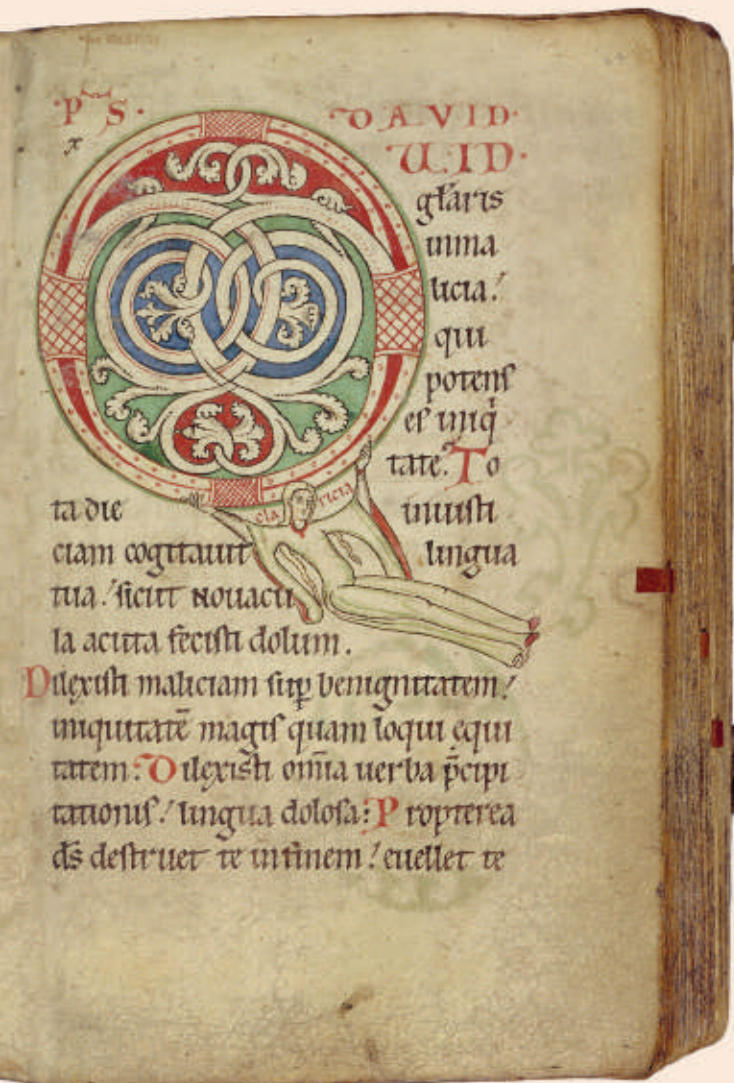 ·PS· DAVID·
Q UID·
gl̄aris
inma
licia!
qui
potens
es iniq̇
tate. To
ta die iniusti
ciam cogitauit lingua
tua! sicut nouacu
la acuta fecisti dolum.
Dilexisti maliciam sup̱ benignitatem!
iniquitatē magis quam loqui equi
tatem: Dilexisti om̄ia uerba p̄cipi
tationis! lingua dolosa: Propterea
d̄s destruet te in finem! euellet te
cla ricia